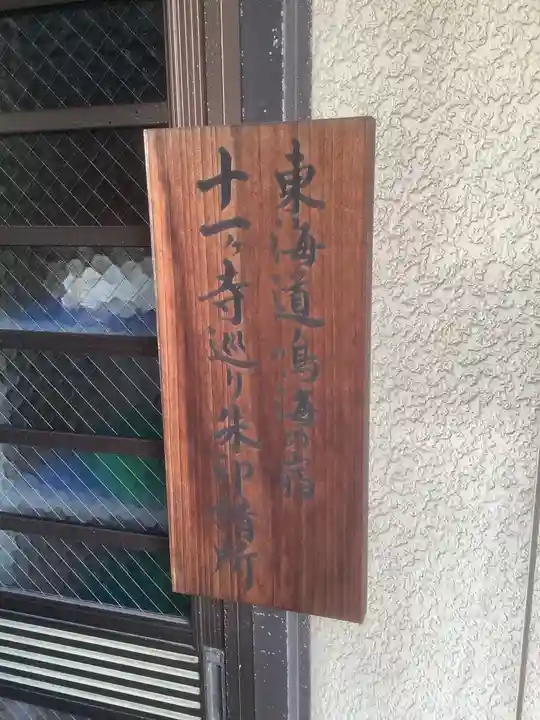 東海道鳴海の宿
十一ヶ寺巡り朱印諸所